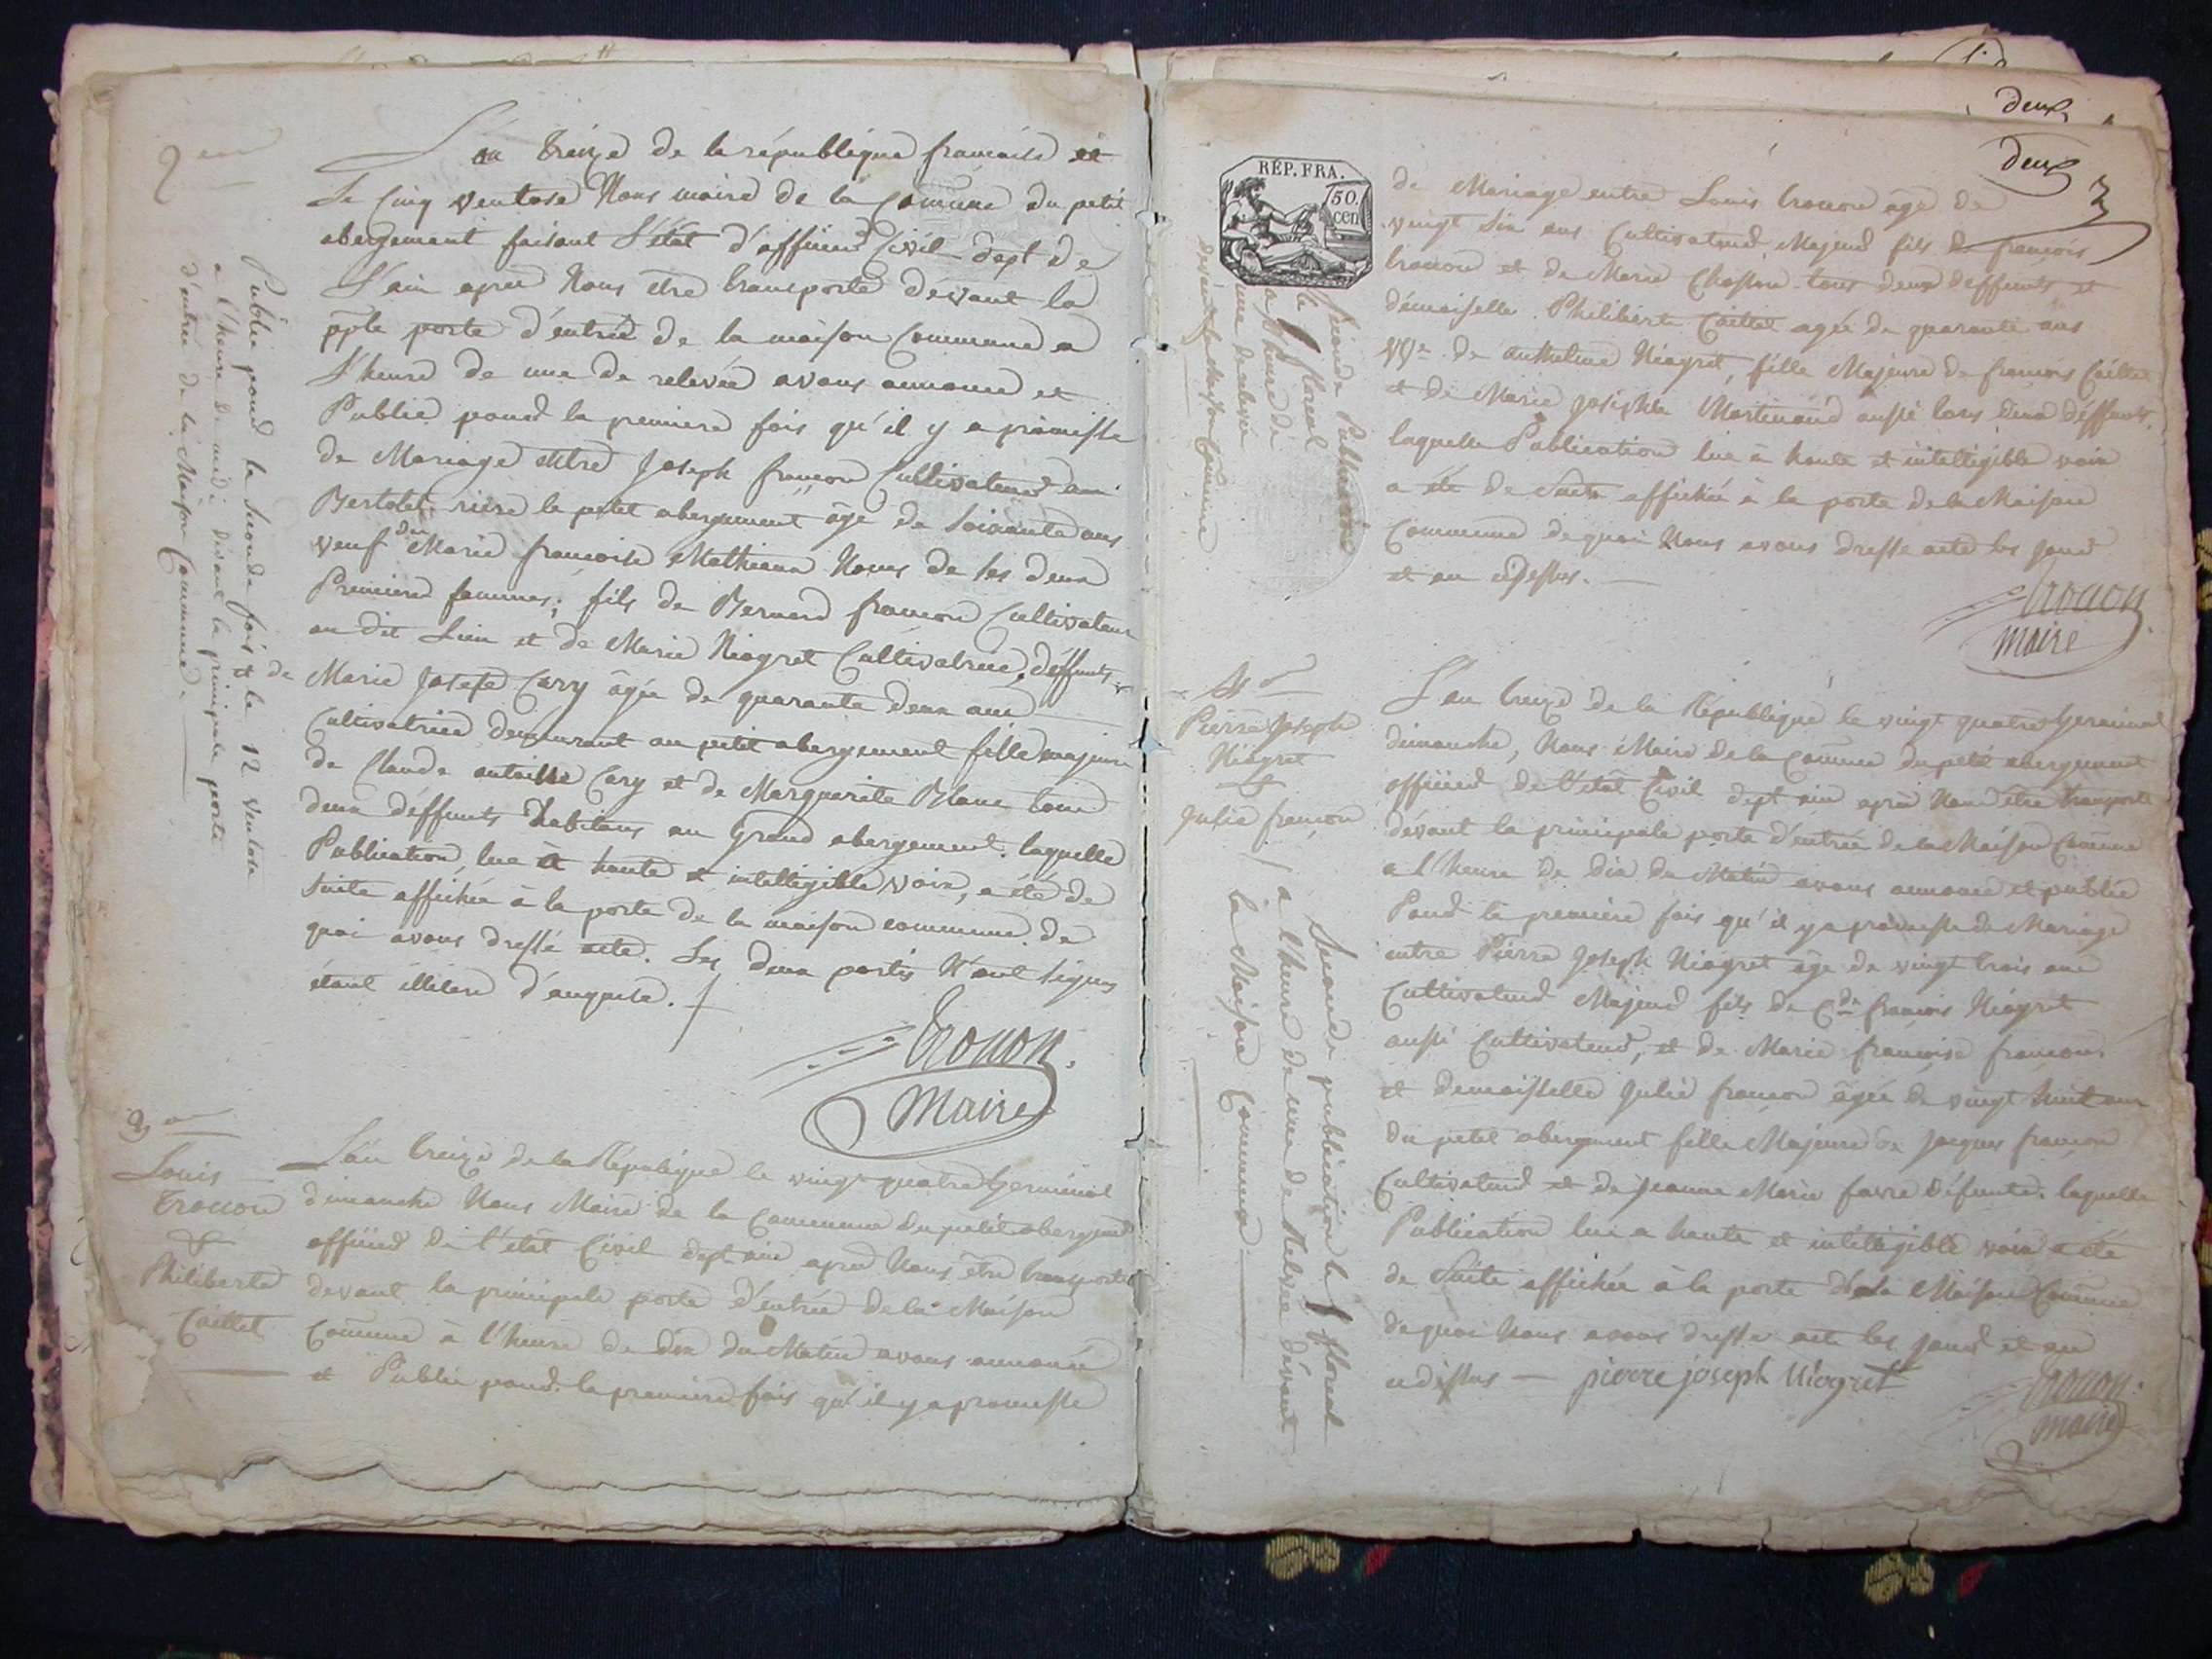 2eme
L'an treize de la république francaise et
Le Cinq ventose Nous maire de la Comune du petit
abergement faisant L'état d'officier Civil dept de
L'ain après Nous être transporté dévant la
pple porte d'entrée de la maison Commune a
L'heure de une de relevée avons annoncé et
Publié pour la premiere fois qu'il y a promesse
de Mariage entre Joseph françon Cultivateur au
rière le petit abergement âgé de Soixante ans
veuf de Marie françoise Mathieux de ses deux
Premieres femmes; fils de Bernard françon Cultivateur
au dit Lieu et de Marie Niogret Cultivatrice, déffunts
de Marie Josefe Cary âgée de quarante deux ans
Cultivatrice demeurant au petit abergement fille majeure
de Claude Cary et de Marguerite Blanc tous
deux déffunts habitans au Grand abergement. laquelle
Publication, lue à haute et intelligible voix, a été de
suite affichée à la porte de la maison commune. de
quoi avons dressé acte. Les deux partis N'ont signés
étant illiteré d'enquise.
trocon
Maire
Publié pour la Seconde fois le 12 ventose
a l'heure de midi dévant la principale porte
d'entrée de la Maison Commune.
3e
Louis
trocon
&
Philiberte
Caillet
L'an treize de la République le vingt quatre Germinal
dimanche Nous Maire de la Commune du petit abergement
officier de l'état Civil dept ain après Nous être transporté
devant la principale porte d'entrée de la Maison
Comune à l'heure de dix du Matin avons annoncé
et Publié pour la premiere fois qu'il y a promesse
deux
deux
REP. FRA.
50.
cen
de Mariage entre Louis trocon âgé de
vingt six ans Cultivateur Majeur fils de françois
trocon et de Marie tous deux deffunts et
démoiselle Philiberte Caillet agée de quarante ans
Vve de Anthelme Niogret, fille Majeure de francois Caillet
et de Marie Josephte Martinand aussi tous deux déffunts.
laquelle Publication lue à haute et intelligible voix
a été de Suite affichée à la porte de la Maison
Commune de quoi Nous avons dressé acte les jour
et an cidessus.
trocon
maire
Seconde Publication
le floreal
a l'heure de
une de relevée
devant la Maison Comune
4e
Pierre Joseph
Niogret
&
Julie françon
L'an treize de la République le vingt quatre Germinal
dimanche, Nous Maire de la Comune du petit abergement
officier de l'etat Civil dept ain après Nous être transporté
dévant la principale porte d'entrée de la Maison Comune
a l'heure de dix du Matin avons annoncé et publié
Pour la premiere fois qu'il y a promesse de Mariage
entre Pierre Joseph Niogret âgé de vingt trois ans
Cultivateur Majeur fils de françois Niogret
aussi Cultivateur, et de Marie françoise françon
et demoiselle Julie françon âgée de vingt huit ans
du petit abergement fille Majeure de Jacques françon
Cultivateur et de Jeanne Marie favre défunte. laquelle
Publication lue a haute et intelligible voix a été
de Suite affichée à la porte de la Maison Comune
de quoi Nous avons dressé acte les jour et an
cidessus — pierre joseph Niogret
trocon
maire
Seconde publication le floreal
a l'heure de une de Relevée dévant
la Maison Commune